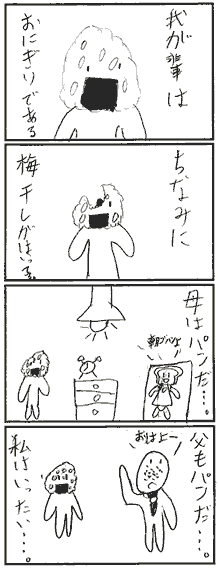 我が輩は
おにぎりである
ちなみに
梅干しがはいってる。
母はパンだ…。
朝ゴハンよ
父もパンだ…。
おはよー
私はいったい…。